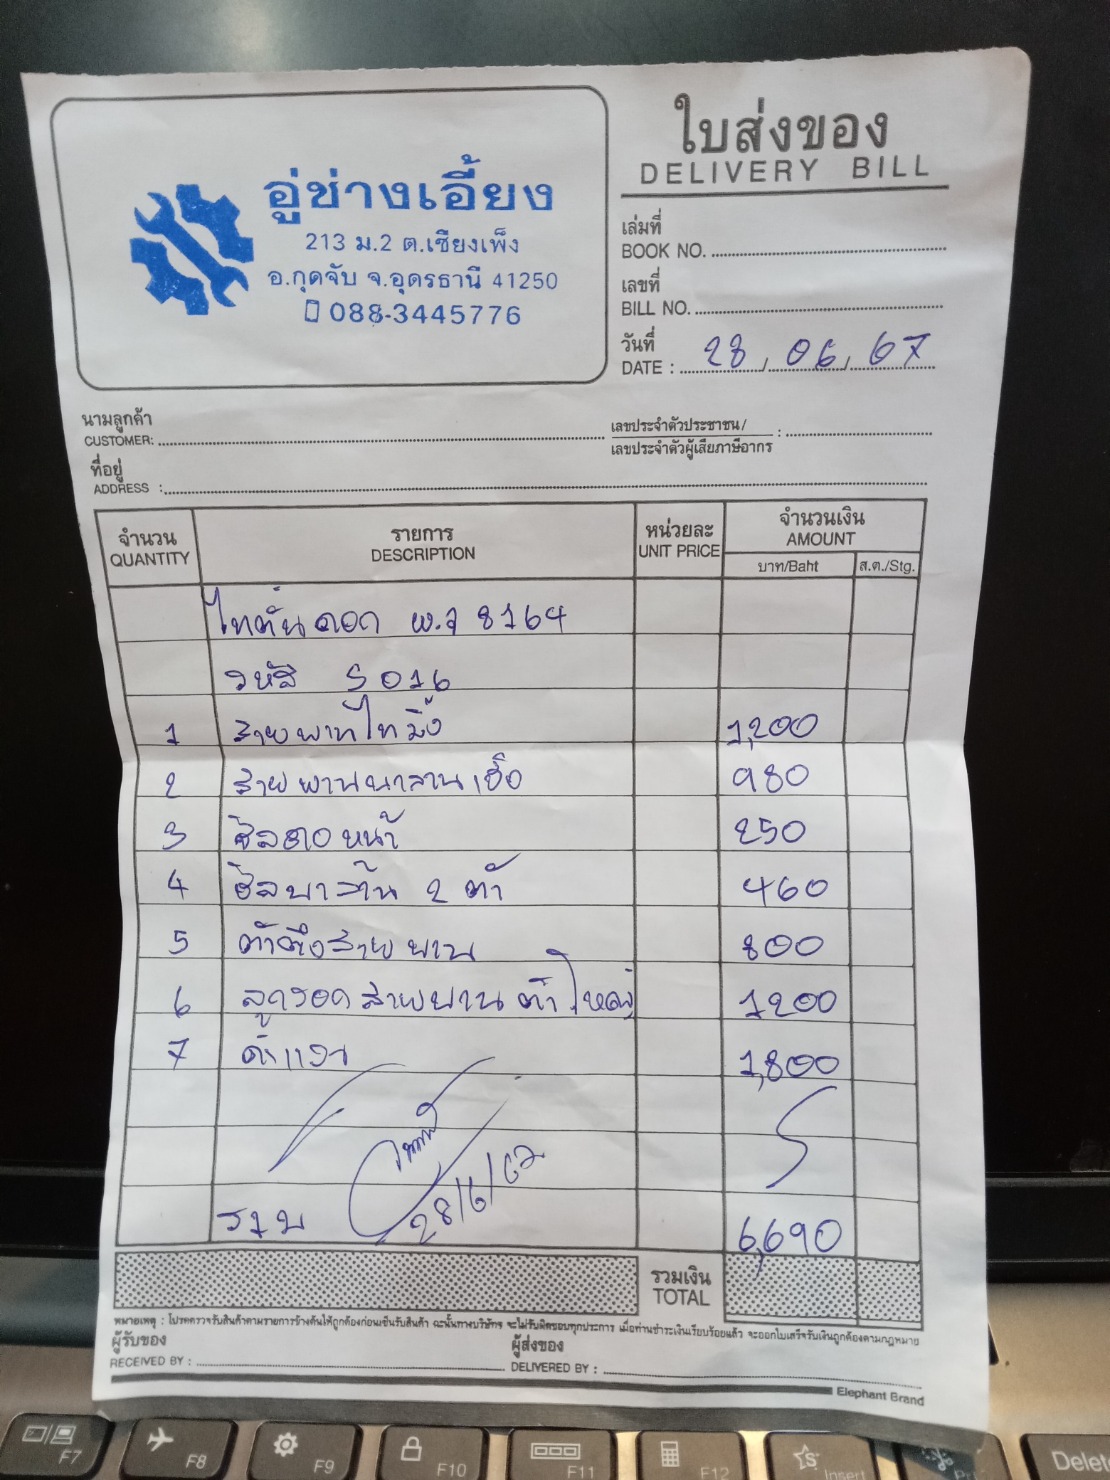 ใบส่งของ
DELIVERY BILL
อู่ช่างเอี้ยง
213 ม.2 ต.เชียงเพ็ง
อ.กุดจับ จ.อุดรธานี 41250
088-3445776
เล่มที่
BOOK NO.
เลขที่
BILL NO.
วันที่
DATE : 28 / 06 / 67
นามลูกค้า
CUSTOMER:
เลขประจำตัวประชาชน/
เลขประจำตัวผู้เสียภาษีอากร :
ที่อยู่
ADDRESS :
จำนวน รายการ หน่วยละ จำนวนเงิน
QUANTITY DESCRIPTION UNIT PRICE AMOUNT
บาท/Baht ส.ต./Stg.
8164
รหัส S016
1 สายพานไทมิ่ง 1,200
2 สายพาน 980
3 ซีล หน้า 250
4 ซีล 2 ตัว 460
5 ตัวตึงสายพาน 800
6 ลูกรอกสายพานตัวใหญ่ 1200
7 ค่าแรง 1,800
28/6/67
รวม 6,690
รวมเงิน
TOTAL
หมายเหตุ : โปรดตรวจรับสินค้าตามรายการข้างต้นให้ถูกต้องก่อนเซ็นรับสินค้า ฉะนั้นทางบริษัทฯ จะไม่รับผิดชอบทุกประการ เมื่อท่านชำระเงินเรียบร้อยแล้ว จะออกใบเสร็จรับเงินถูกต้องตามกฎหมาย
ผู้รับของ ผู้ส่งของ
RECEIVED BY : DELIVERED BY :
Elephant Brand
F7 F8 F9 F10 F11 F12 Insert Delet